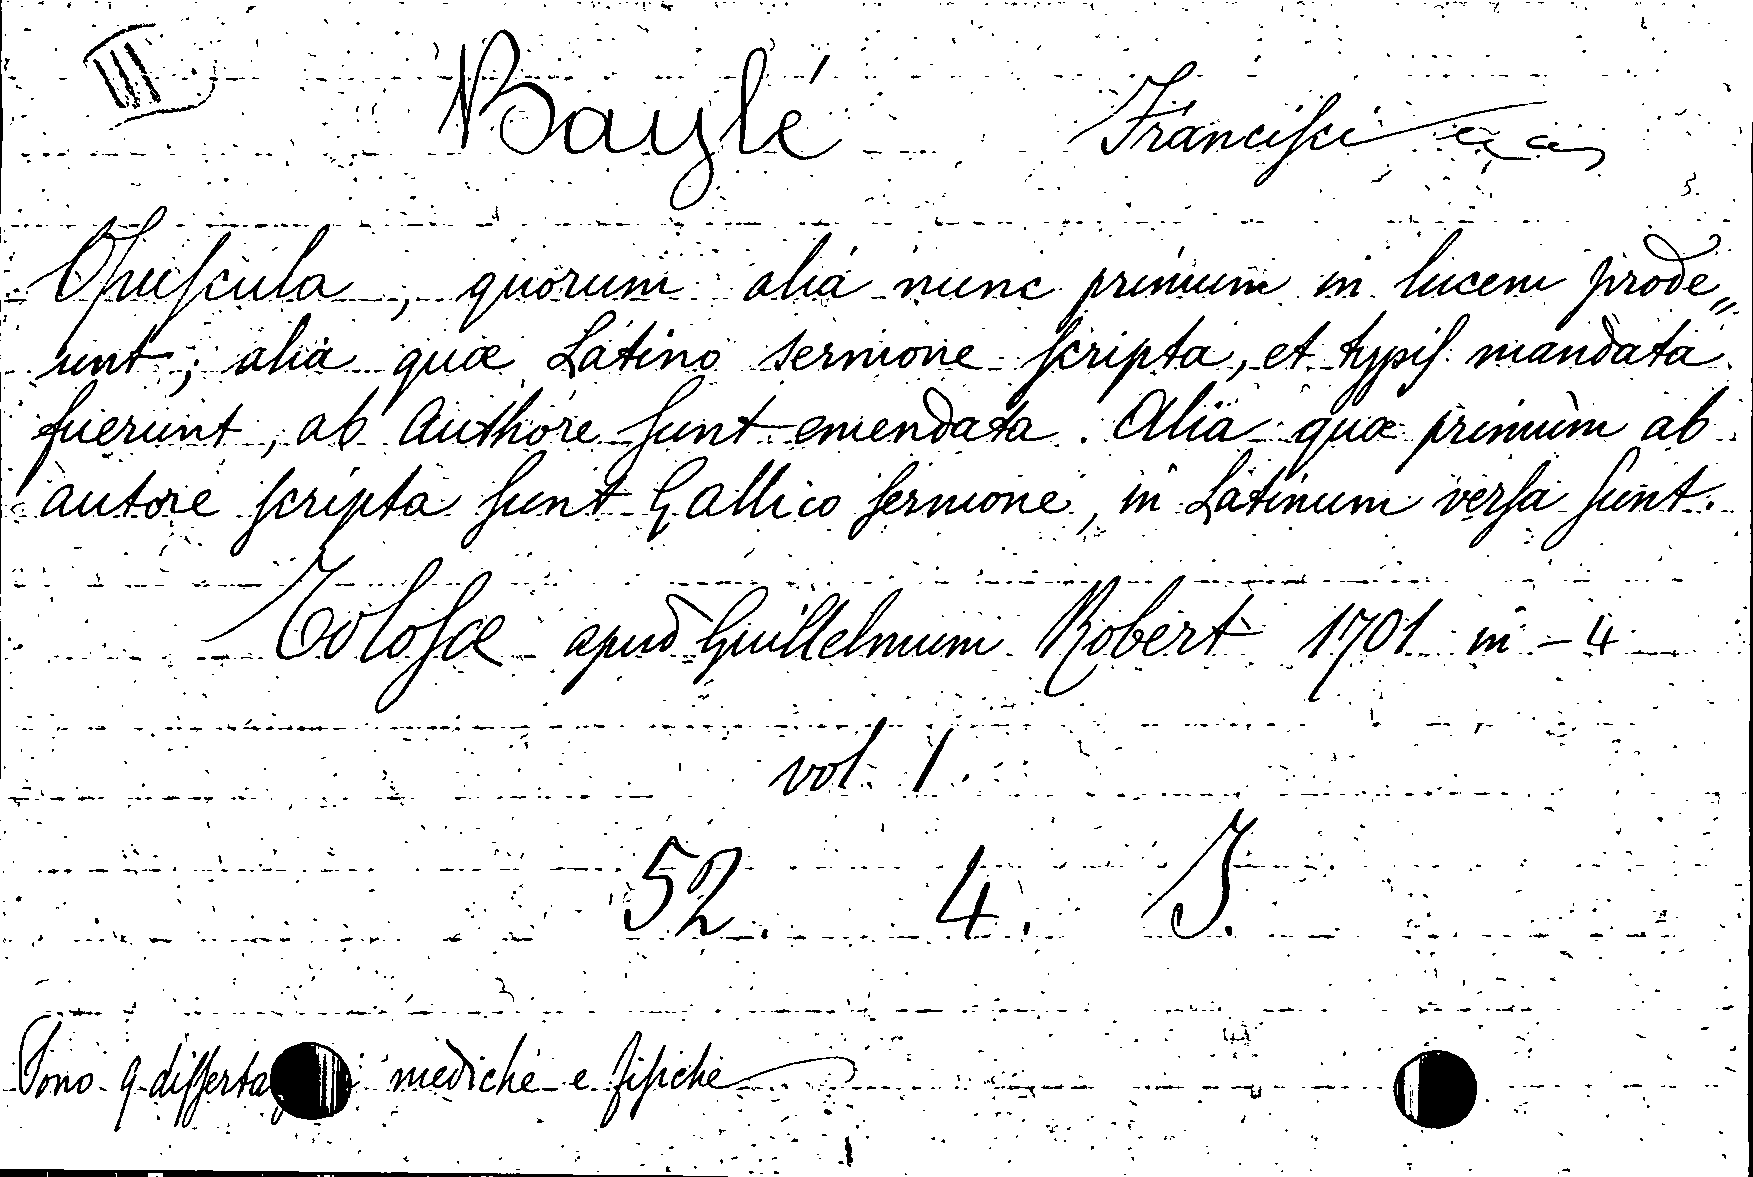 III
Baylé Francisci
Opuscula, quorum alia nunc primum in lucem prode„
unt; alia quæ Latino sermone scripta, et typis mandata
fuerunt, ab Authore sunt emendata. Alia quæ primùm ab
autore scripta sunt Gallico sermone, in Latinum versa sunt.
Tolosæ apud Guillelmum Robert 1701 in-4
vol. 1.
52. 4. J.
Sono 9 mediche e fisiche